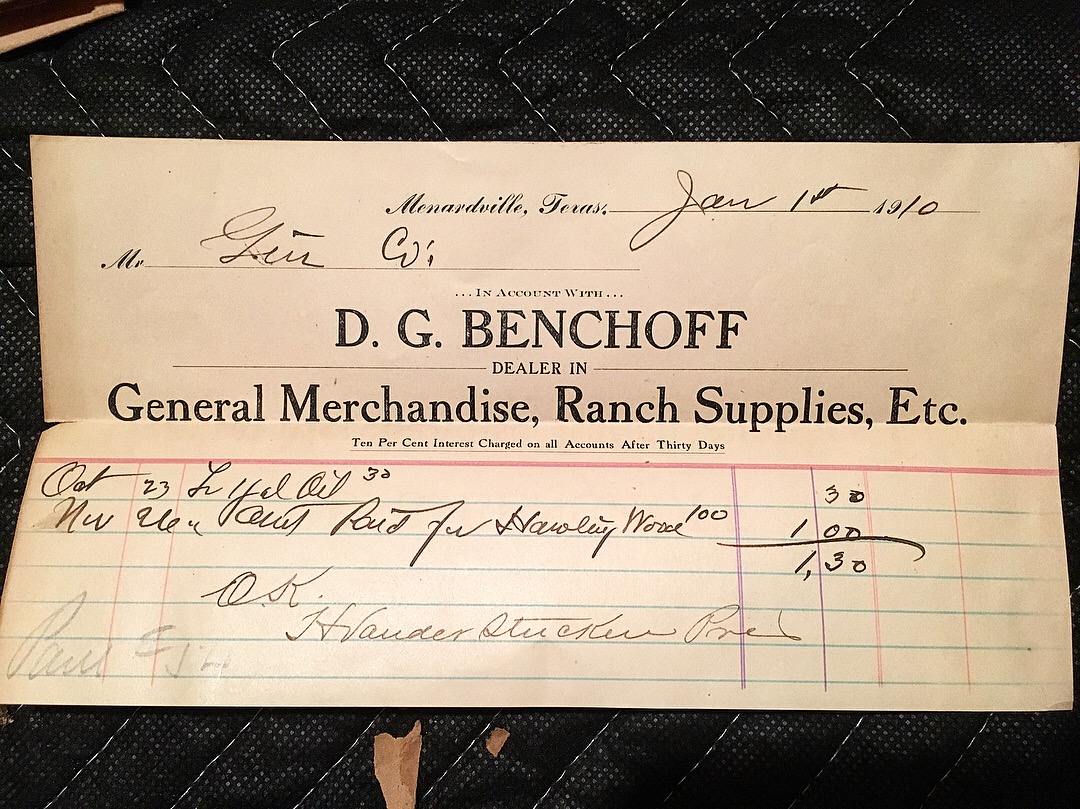 Menardville, Texas. Jan 1st 1910
Mr. Gin Co;
...In Account With...
D. G. BENCHOFF
DEALER IN
General Merchandise, Ranch Supplies, Etc.
Ten Per Cent Interest Charged on all Accounts After Thirty Days
Oct 23 Oil 30 30
Nov 26 " Amt Paid for Hawling Wood 100 1 00
1,30
O.K.
H Vander Stucken Pres
Paid